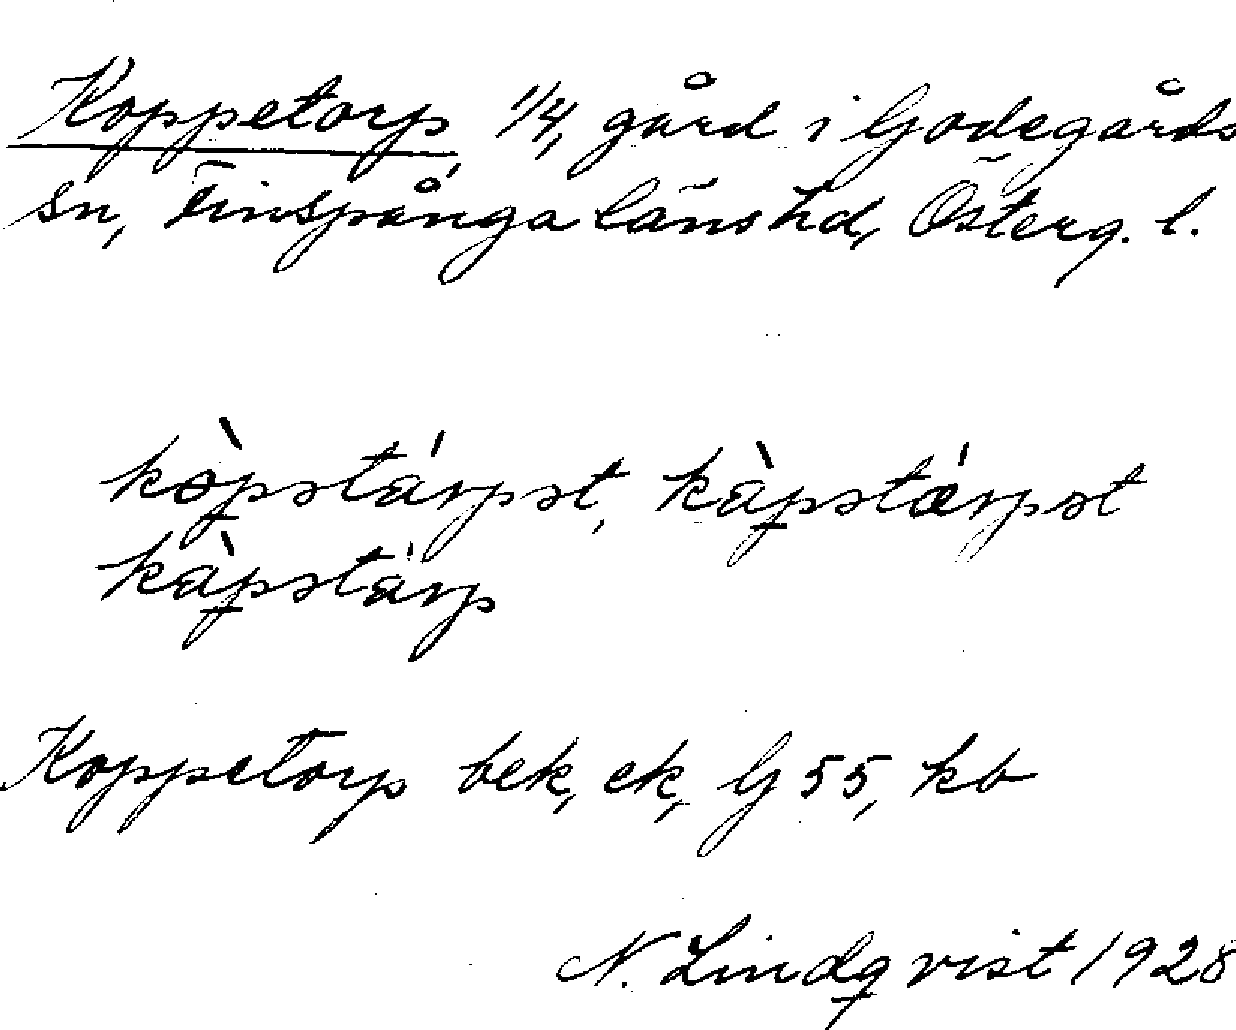 Koppetorp, 1/4, gård i Godegårds
sn, Finspånga läns hd, Österg. l.
kòpǝtárpǝt, kàpǝtǽrpǝt
kàpǝtárp
Koppetorp bek, ek, G 55, kb
N. Lindqvist 1928